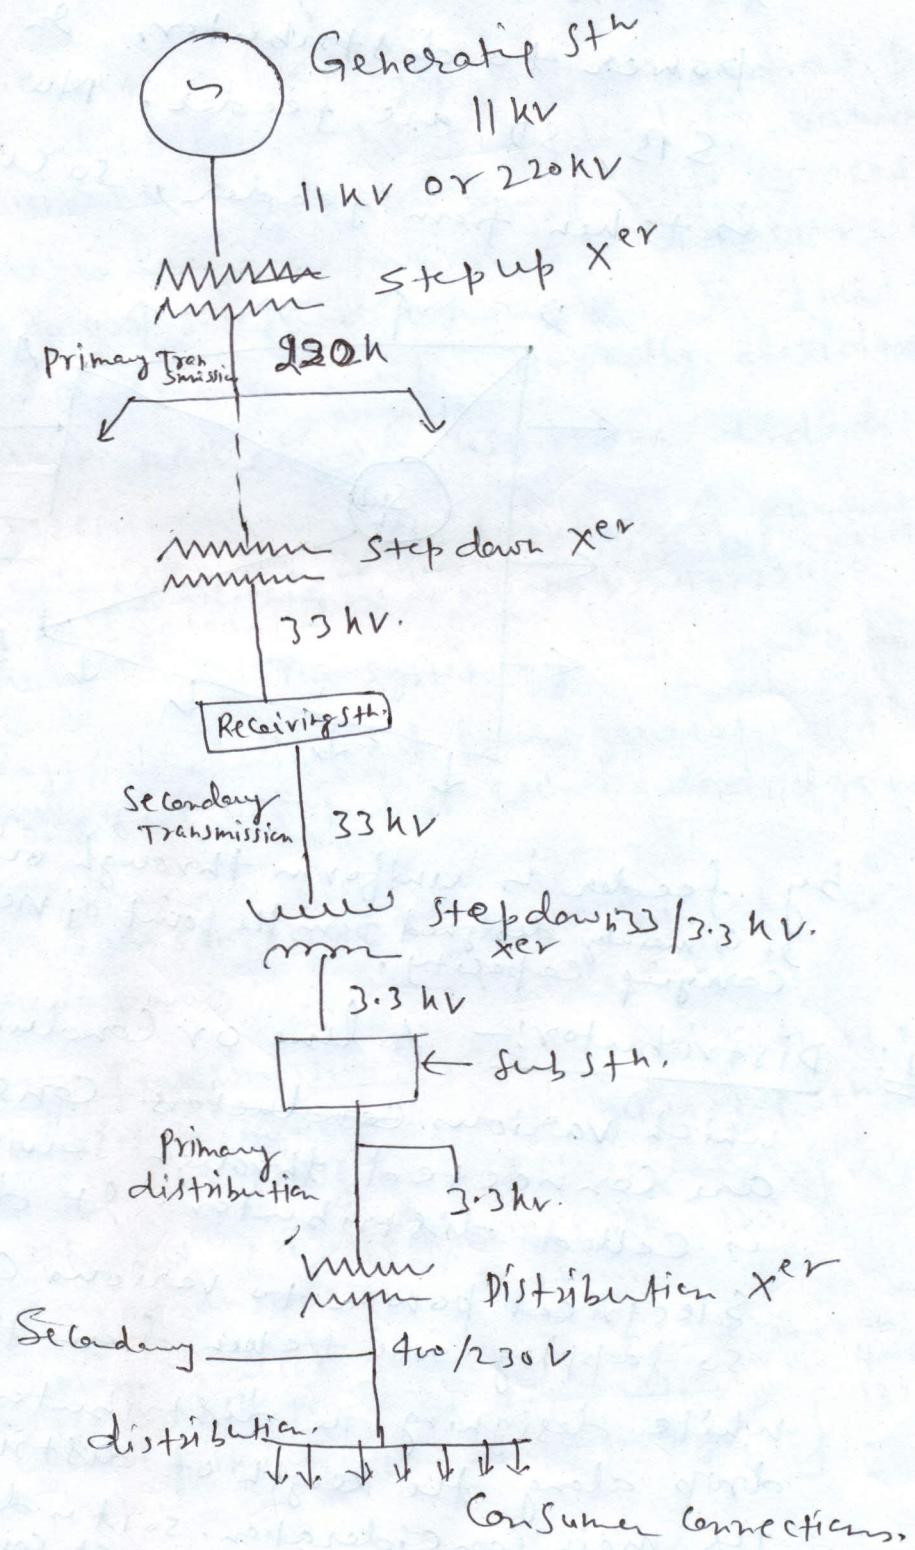 Generating Stn
11 kV
11 kV or 220 kV
Step up xer
Primary Transmission
220k
Step down xer
33 kV.
Receiving Stn.
Secondary
Transmission
33 kV
Step down 33/3.3 kV.
xer
3.3 kV
← Sub Stn.
Primary
distribution
3.3 kv.
Distribution xer
Secondary
400/230V
distribution.
Consumer connections.